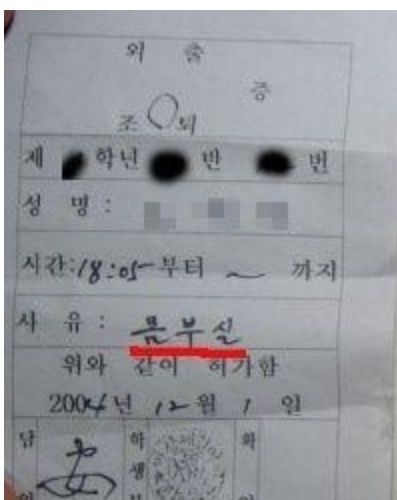 외 출
증
조 퇴
제 학년 반 번
성 명 :
시간:18:05부터 ~ 까지
사 유 : 몸부실
위와 같이 허가함
2004년 12월 1일
담 학 확
생